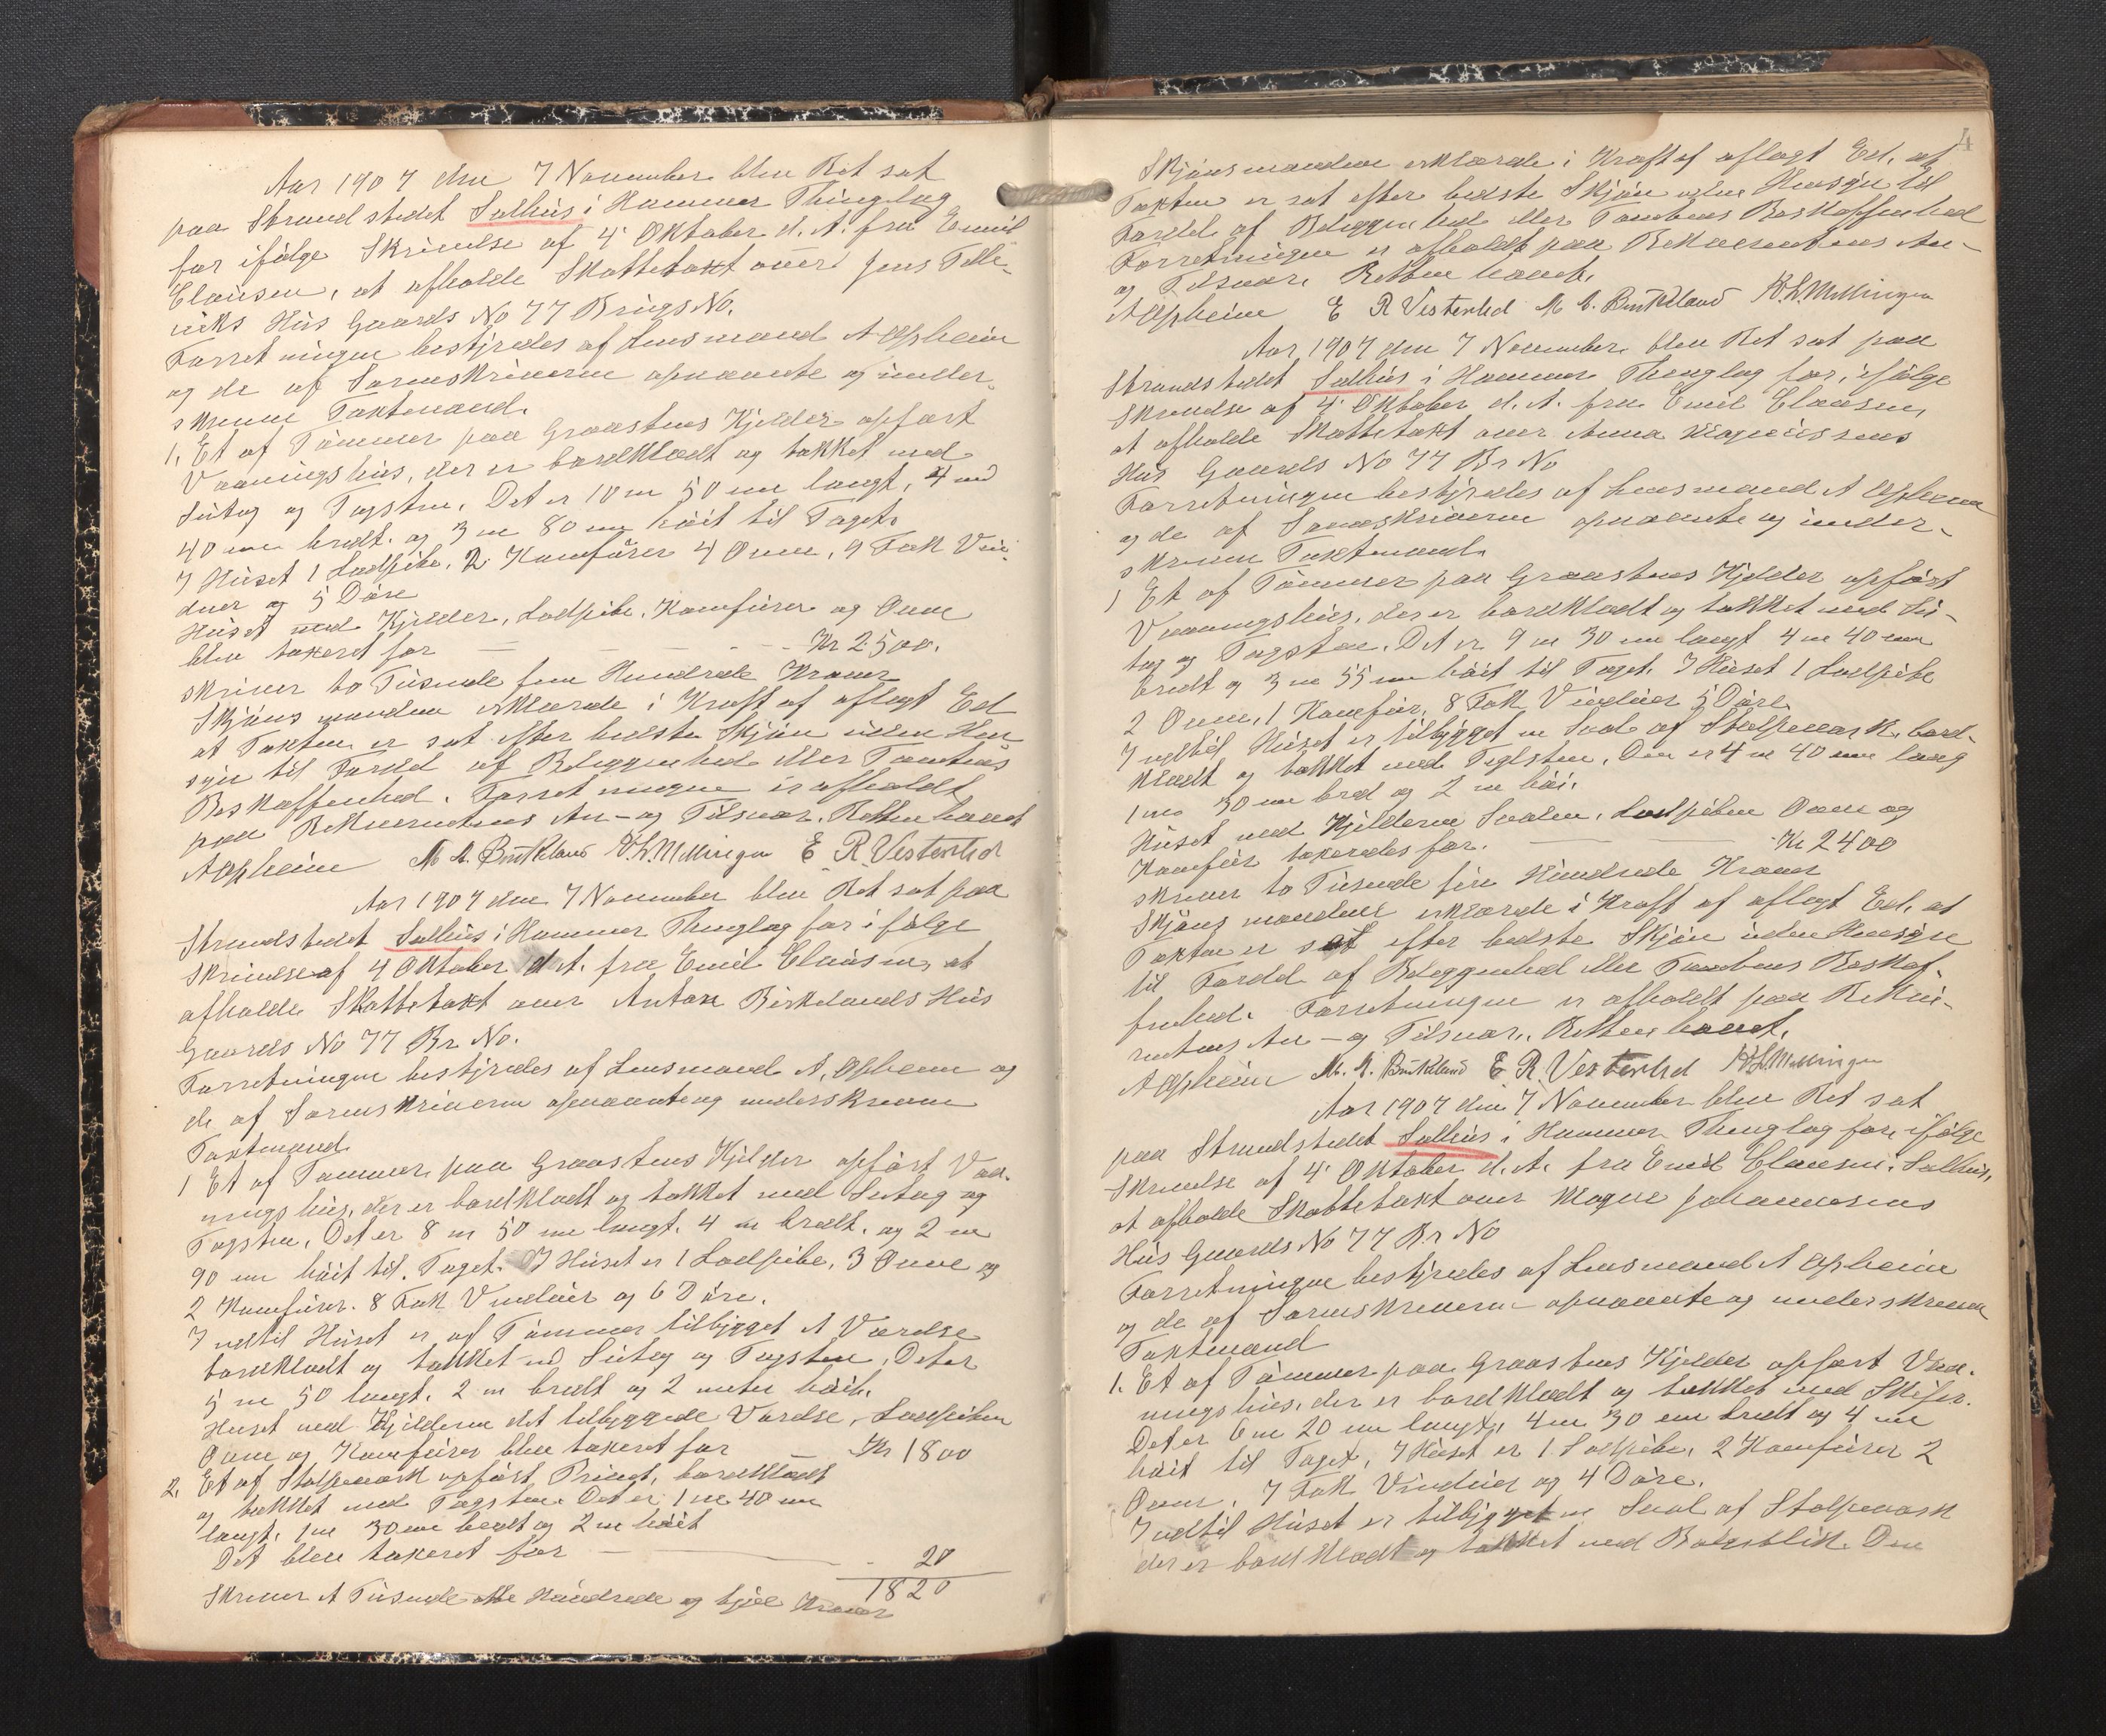 Aar 1907 den 7 November blev Ret sat
paa Strandstedet Salhus i Hammer Thinglag
for ifølge Skrivelse af 4 Oktober d. A. fra Emil
Clausen, at afholde Skattetaxt over Jens Telle-
viks Hus Gaards No 77 Brugs No.
Forretningen bestyredes af Lensmand A Opheim
og de af Sorenskriveren opnævnte og under-
skrevne Taxtmænd.
1. Et af Tømmer paa Graastens Kjelder opført
Vaaningshus, der er bordklædt og tækket med
Sutag og Tagsten. Det er 10 m 50 cm langt, 4 m
40 cm bredt og 3 m 80 cm høit til Taget.
I Huset 1 Ladpibe, 2 Komfurer 4 Ovne, 9 Fak Vin-
duer og 5 Døre
Huset med Kjelder, Ladpibe, Komfurer og Ovne
blev taxeret for — — — Kr 2500.
skriver to Tusende fem Hundrede Kroner
Skjønsmændene erklærede i Kraft af aflagt Ed
at Taxten er sat efter bedste Skjøn uden Hen
syn til Fordel af Beliggenhed eller Tomtens
Beskaffenhed. Forretningen er afholdt
paa Rekvirentens An- og Tilsvar. Retten hævet
A Opheim M. A. Birkeland H. L. Mellingen E R Vesterlid
Aar 1907 den 7 November blev Ret sat paa
Strandstedet Salhus i Hammer Thinglag for ifølge
Skrivelse af 4 Oktober d. A. fra Emil Clausen, at
afholde Skattetaxt over Anton Birkelands Hus
Gaards No 77 Br. No.
Forretningen bestyredes af Lensmand A. Opheim og
de af Sorenskriveren opnævnte og underskrevne
Taxtmænd
1 Et af Tømmer paa Graastens Kjelder opført Vaa-
ningshus, der er bordklædt og tækket med Sutag og
Tagsten. Det er 8 m 50 cm langt. 4 m bredt. og 2 m
90 cm høit til Taget. I Huset er 1 Ladpibe, 3 Ovne og
2 Komfurer. 8 Fak Vinduer og 6 Døre.
Indtil Huset er af Tømmer tilbygget et Værelse
bordklædt og tækket m Sutag og Tagsten. Det er
5 m 50 langt. 2 m bredt og 2 meter høit.
Huset med Kjelderen det tilbyggede Værelse, Ladpiben
Ovne og Komfurer blev taxeret for — Kr 1800
2. Et af Stolpeværk opført Privet, bordklædt
og tækket med Tagsten. Det er 1 m 40 cm
langt. 1 m 30 cm bredt og 2 m høit
Det blev taxeret for — — 20
1820
Skriver et Tusende otte Hundrede og tyve Kroner
4
Skjønsmændene erklærede i Kraft af aflagt Ed, at
Taxten er sat efter bedste Skjøn uden Hensyn til
Fordel af Beliggenhed eller Tomtens Beskaffenhed
Forretningen er afholdt paa Rekvirentens An-
og Tilsvar. Retten hævet.
A Opheim E R Vesterlid M A. Birkeland H. L. Mellingen
Aar 1907 den 7 November blev Ret sat paa
Strandstedet Salhus i Hammer Thinglag for, ifølge
Skrivelse af 4 Oktober d. A. fra Emil Clausen,
at afholde Skattetaxt over Anna Magnussens
Hus Gaards No 77 Br No
Forretningen bestyredes af Lensmand A Opheim
og de af Sorenskriveren opnævnte og under-
skrevne Taxtmænd.
1 Et af Tømmer paa Graastens Kjelder opført
Vaaningshus, der er bordklædt og tækket med Su-
tag og Tagsten. Det er 9 m 30 cm langt 4 m 40 cm
bredt og 3 m 55 cm høit til Taget. I Huset 1 Ladpibe
2 Ovne, 1 Komfur, 8 Fak Vinduer 5 Døre.
Indtil Huset er tilbygget en Sval af Stolpeværk, bord-
klædt og tækket med Teglsten. Den er 4 m 40 cm lang
1 m 30 cm bred og 2 m høi.
Huset med Kjelderen Svalen, Ladpiben Ovne og
Komfur taxeredes for. — Kr 2400
skriver to Tusende fire Hundrede Kroner
Skjønsmændene erklærede i Kraft af aflagt Ed, at
Taxten er sat efter bedste Skjøn uden Hensyn
til Fordel af Beliggenhed eller Tomtens Beskaf-
fenhed. Forretningen er afholdt paa Rekvi-
rentens An- og Tilsvar. Retten hævet.
A Opheim M. A. Birkeland E R. Vesterlid H L Mellingen
Aar 1907 den 7 November blev Ret sat
paa Strandstedet Salhus i Hammer Thinglag for, ifølge
Skrivelse af 4 Oktober d. A. fra Emil Clausen, Salhus,
at afholde Skattetaxt over Mogne Johannesens
Hus Gaards No 77 Br No
Forretningen bestyredes af Lensmand A Opheim
og de af Sorenskriveren opnævnte og underskrevne
Taxtmænd
1. Et af Tømmer paa Graastens Kjelder opført Vaa-
ningshus, der er bordklædt og tækket med Skifer.
Det er 6 m 20 cm langt, 4 m 30 cm bredt og 4 m
høit til Taget, I Huset er 1 Ladpibe, 2 Komfurer 2
Ovne, 7 Fak Vinduer og 4 Døre.
Indtil Huset er tilbygget en Sval af Stolpeværk
der er bordklædt og tækket med Bølgeblik. Den